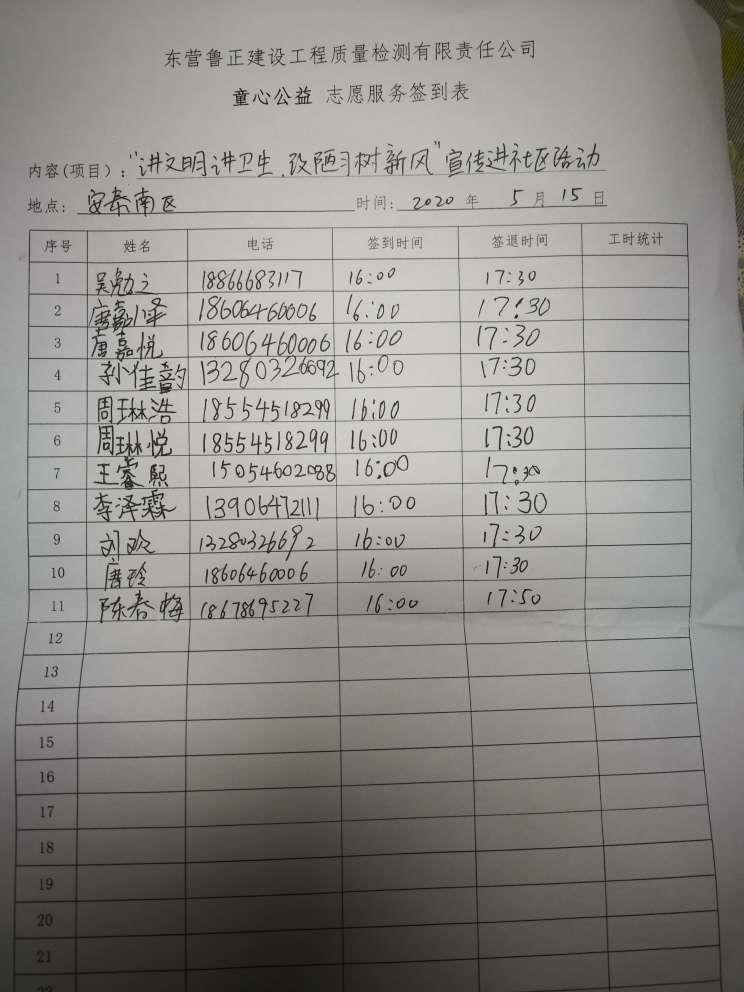 东营鲁正建设工程质量检测有限责任公司
童心公益 志愿服务签到表
内容(项目)："讲文明讲卫生，改陋习树新风"宣传进社区活动
地点：安泰南区 时间：2020 年 5 月 15 日
序号 姓名 电话 签到时间 签退时间 工时统计
1 吴勉之 18866683117 16:00 17:30
2 唐嘉泽 18606460006 16:00 17:30
3 唐嘉悦 18606460006 16:00 17:30
4 孙佳韵 13280326692 16:00 17:30
5 周琳浩 18554518299 16:00 17:30
6 周琳悦 18554518299 16:00 17:30
7 王睿熙 15054602088 16:00 17:30
8 李泽霖 13906472111 16:00 17:30
9 刘欢 13280326692 16:00 17:30
10 唐玲 18606460006 16:00 17:30
11 陈春梅 18678695227 16:00 17:50
12
13
14
15
16
17
18
19
20
21